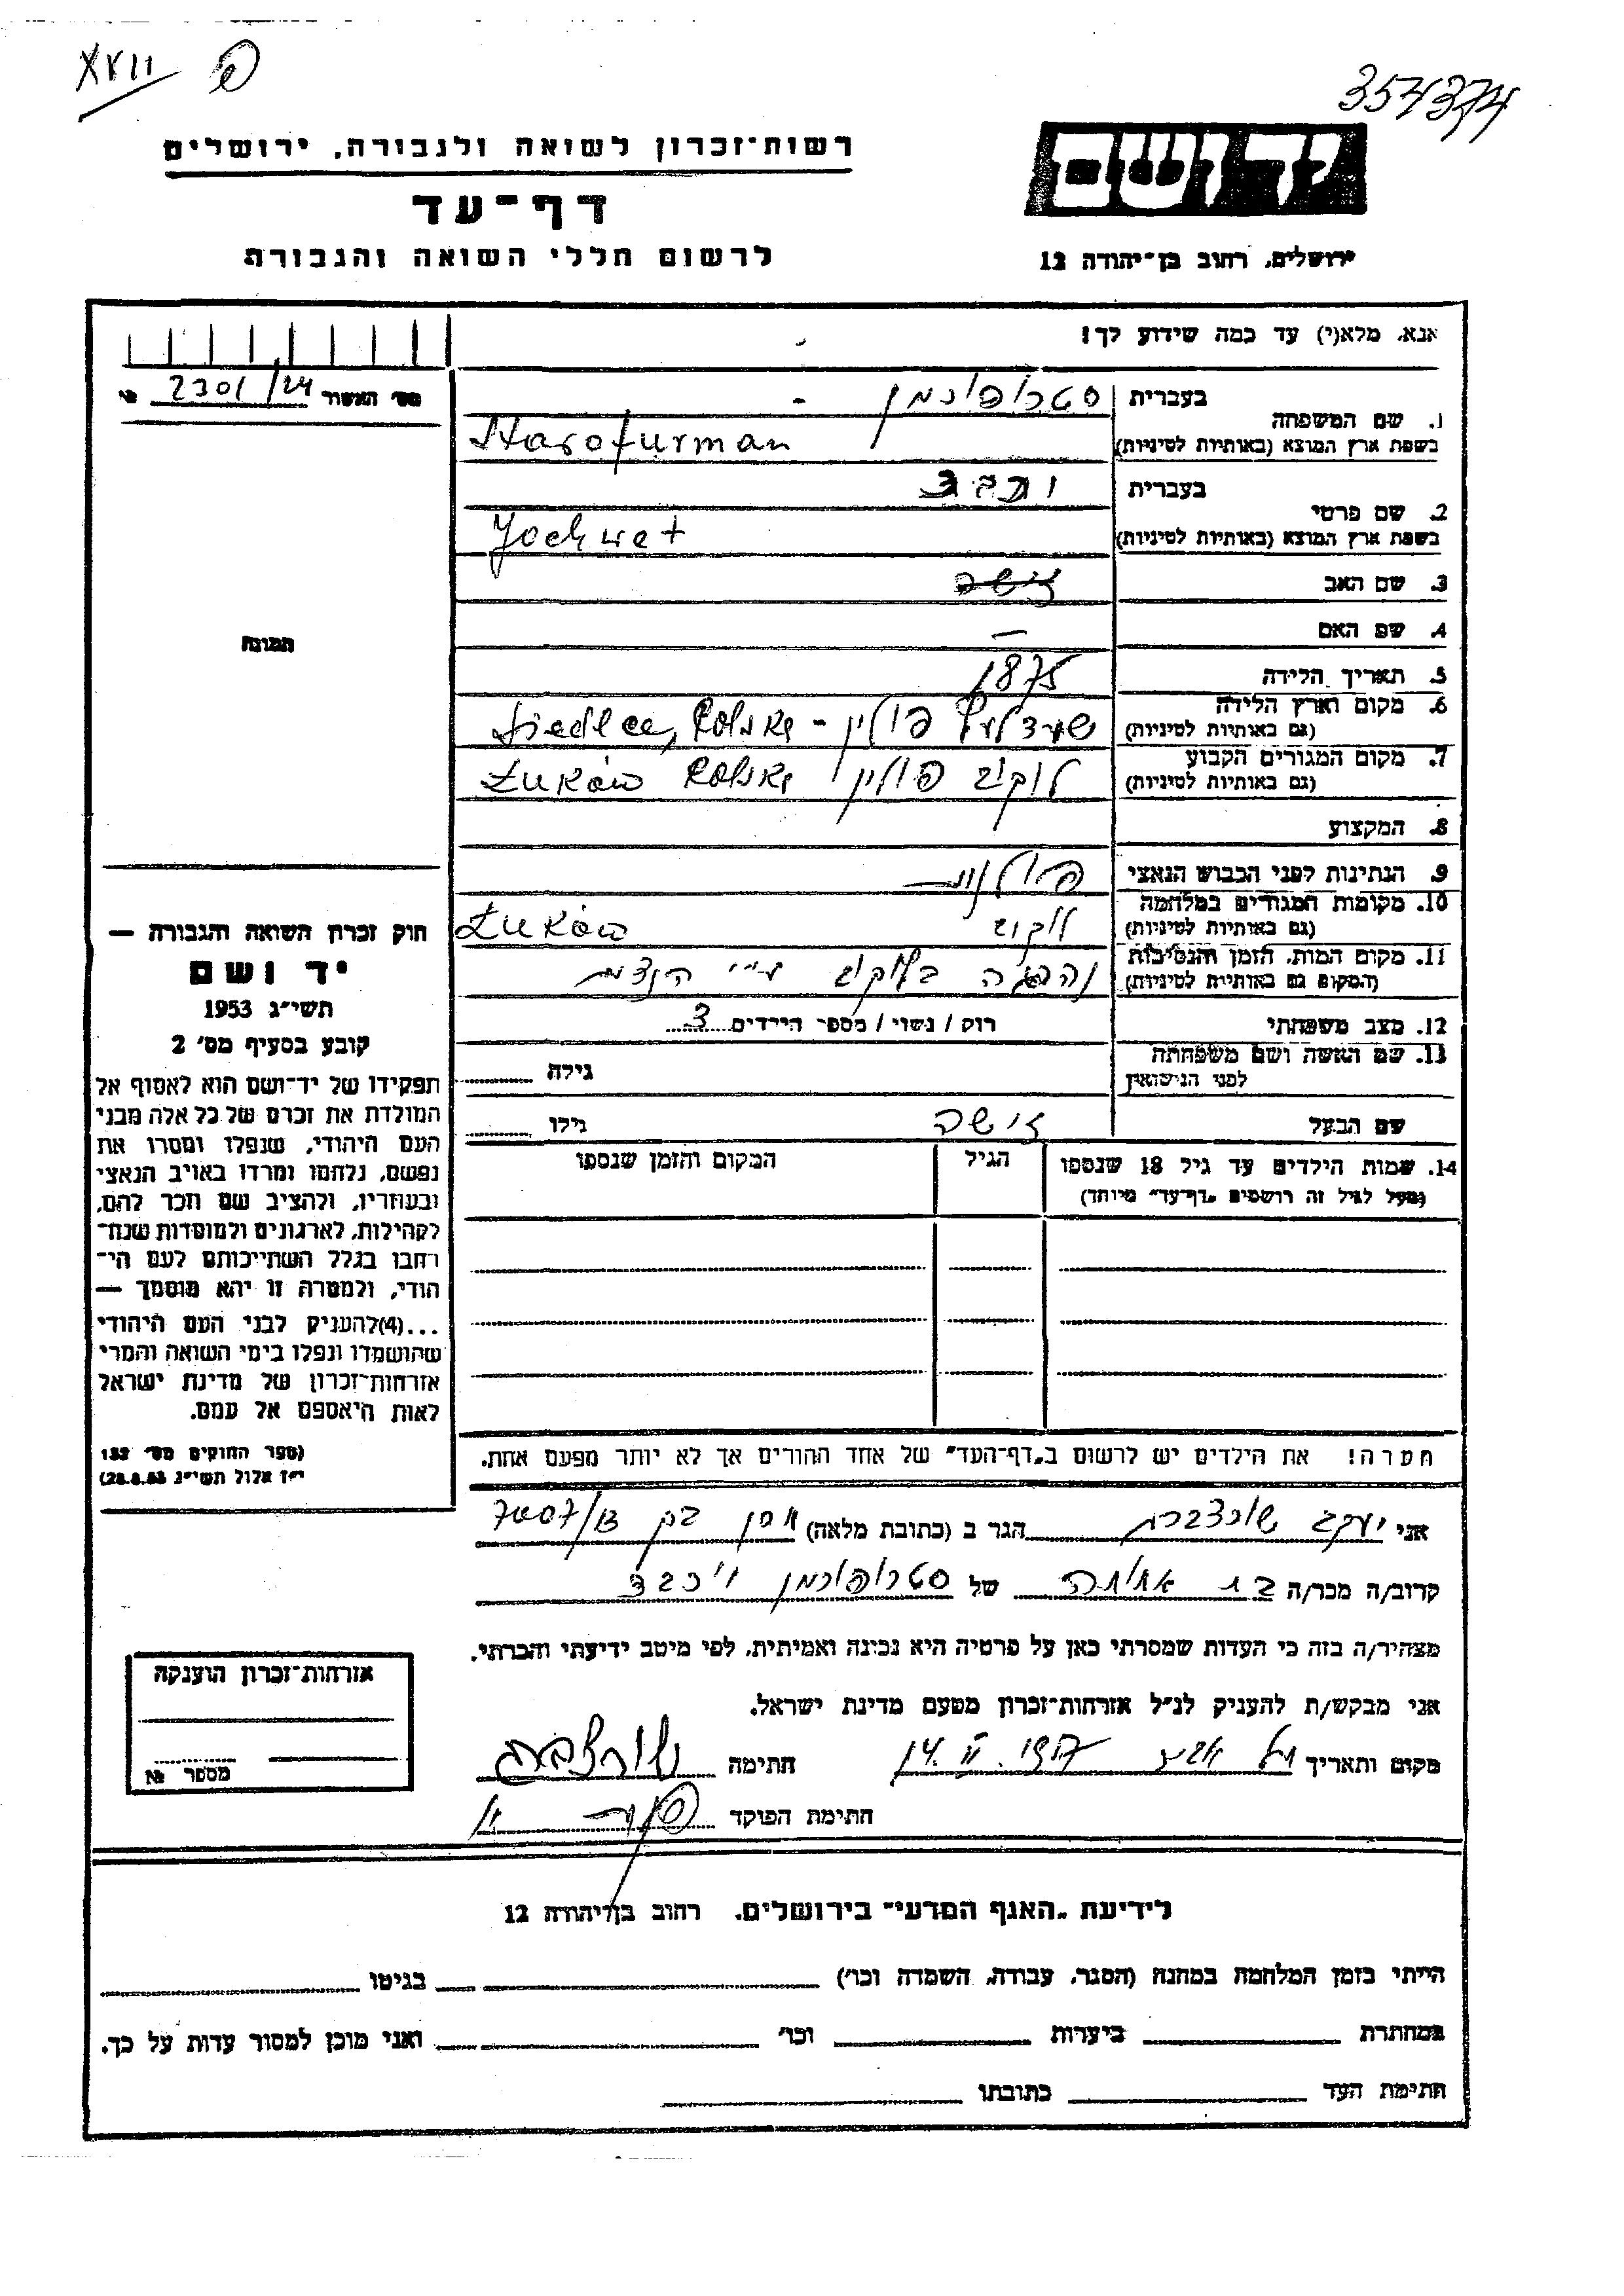 XVII
357374
רשות־זכרון לשואה ולגבורה, ירושלים
דף־עד
לרשום חללי השואה והגבורה
יד ושם
ירושלים, רחוב בן־יהודה 12
אנא, מלא(י) עד כמה שידוע לך!
מס׳ האשור 2301/24 №
1. שם המשפחה
בעברית
סטרופורמן -
בשפת ארץ המוצא (באותיות לטיניות)
Starofurman
2. שם פרטי
בעברית
יוכבד
בשפת ארץ המוצא (באותיות לטיניות)
Jochwet
3. שם האב זישה
4. שם האם —
5. תאריך הלידה 1875
6. מקום וארץ הלידה
(גם באותיות לטיניות)
שעדלעץ פולין - Siedlce, Polska
7. מקום המגורים הקבוע
(גם באותיות לטיניות)
לוקוב פולין Łuków Polska
8. המקצוע
9. הנתינות לפני הכבוש הנאצי פולנית
10. מקומות המגורים במלחמה
(גם באותיות לטיניות)
לוקוב Łuków
11. מקום המות, הזמן והנסיבות
(המקום גם באותיות לטיניות)
נהרגה בלוקוב ע״י
12. מצב משפחתי רוק / נשוי / מספר הילדים 3
13. שם האשה ושם משפחתה
לפני הנישואין
גילה
שם הבעל זישה גילו
14. שמות הילדים עד גיל 18 שנספו
(מעל לגיל זה רושמים „דף־עד״ מיוחד)
הגיל
המקום והזמן שנספו
תמונה
חוק זכרון השואה והגבורה —
יד ושם
תשי״ג 1953
קובע בסעיף מס׳ 2
תפקידו של יד־ושם הוא לאסוף אל
המולדת את זכרם של כל אלה מבני
העם היהודי, שנפלו ומסרו את
נפשם, נלחמו ומרדו באויב הנאצי
ובעוזריו, ולהציב שם וזכר להם,
לקהילות, לארגונים ולמוסדות שנח־
רבו בגלל השתייכותם לעם הי־
הודי, ולמטרה זו יהא מוסמך —
...(4)להעניק לבני העם היהודי
שהושמדו ונפלו בימי השואה והמרי
אזרחות־זכרון של מדינת ישראל
לאות היאספם אל עמם.
(ספר החוקים מס׳ 132
י״ז אלול תשי״ג 28.8.53)
הערה! את הילדים יש לרשום ב„דף־העד״ של אחד ההורים אך לא יותר מפעם אחת.
אני יעקב שורצברג הגר ב (כתובת מלאה)
קרוב/ה מכר/ה בן אחותה של סטרופורמן יוכבד
מצהיר/ה בזה כי העדות שמסרתי כאן על פרטיה היא נכונה ואמיתית, לפי מיטב ידיעתי והכרתי.
אני מבקש/ת להעניק לנ״ל אזרחות־זכרון מטעם מדינת ישראל.
מקום ותאריך תל אביב 14. II חתימה שורצברג
חתימת הפוקד
אזרחות־זכרון הוענקה
מספר №
לידיעת „האגף המדעי״ בירושלים, רחוב בן־יהודה 12
הייתי בזמן המלחמה במחנה (הסגר, עבודה, השמדה וכו׳) בגיטו
במחתרת ביערות וכו׳ ואני מוכן למסור עדות על כך.
חתימת העד כתובתו